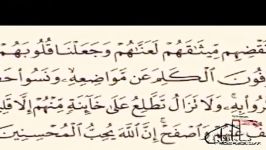 نَقْضِهِم مِّيثَـٰقَهُمْ لَعَنَّـٰهُمْ وَجَعَلْنَا قُلُوبَهُمْ
فُونَ ٱلْكَلِمَ عَن مَّوَاضِعِهِۦ وَنَسُوا۟ حَظ
رُوا۟ بِهِۦ وَلَا تَزَالُ تَطَّلِعُ عَلَىٰ خَآئِنَةٍ مِّنْهُمْ إِلَّا قَلِي
وَٱصْفَحْ إِنَّ ٱللَّهَ يُحِبُّ ٱلْمُحْسِنِينَ